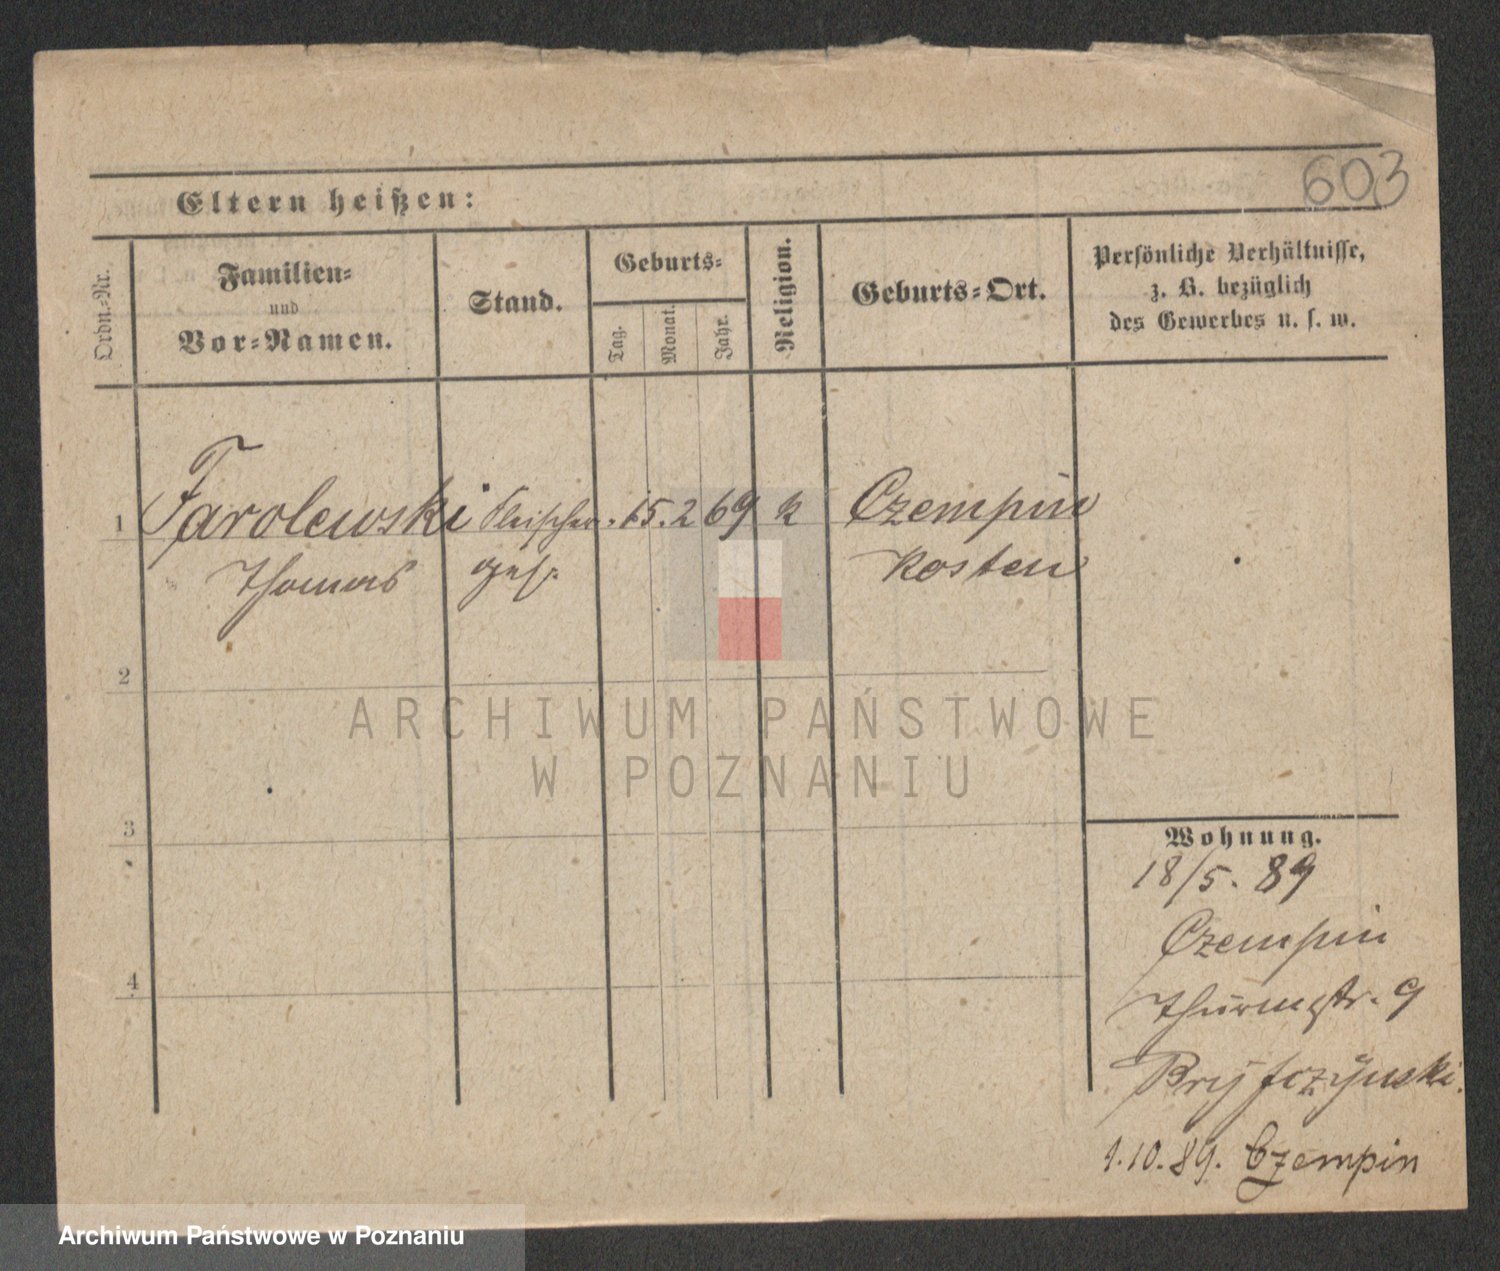 603
Eltern heißen:
Ordn.-Nr.
Familien-
und
Vor-Namen.
Stand.
Geburts-
Tag.
Monat.
Jahr.
Religion.
Geburts-Ort.
Persönliche Verhältnisse,
z. B. bezüglich
des Gewerbes u. s. w.
1 Farolewski Fleischer 15. 2 69 k Czempin
Thomas ges. Kosten
2
3
4
Wohnung.
18/5. 89
Czempin
Thurmstr. 9
1.10.89. Czempin
ARCHIWUM PAŃSTWOWE
W POZNANIU
Archiwum Państwowe w Poznaniu